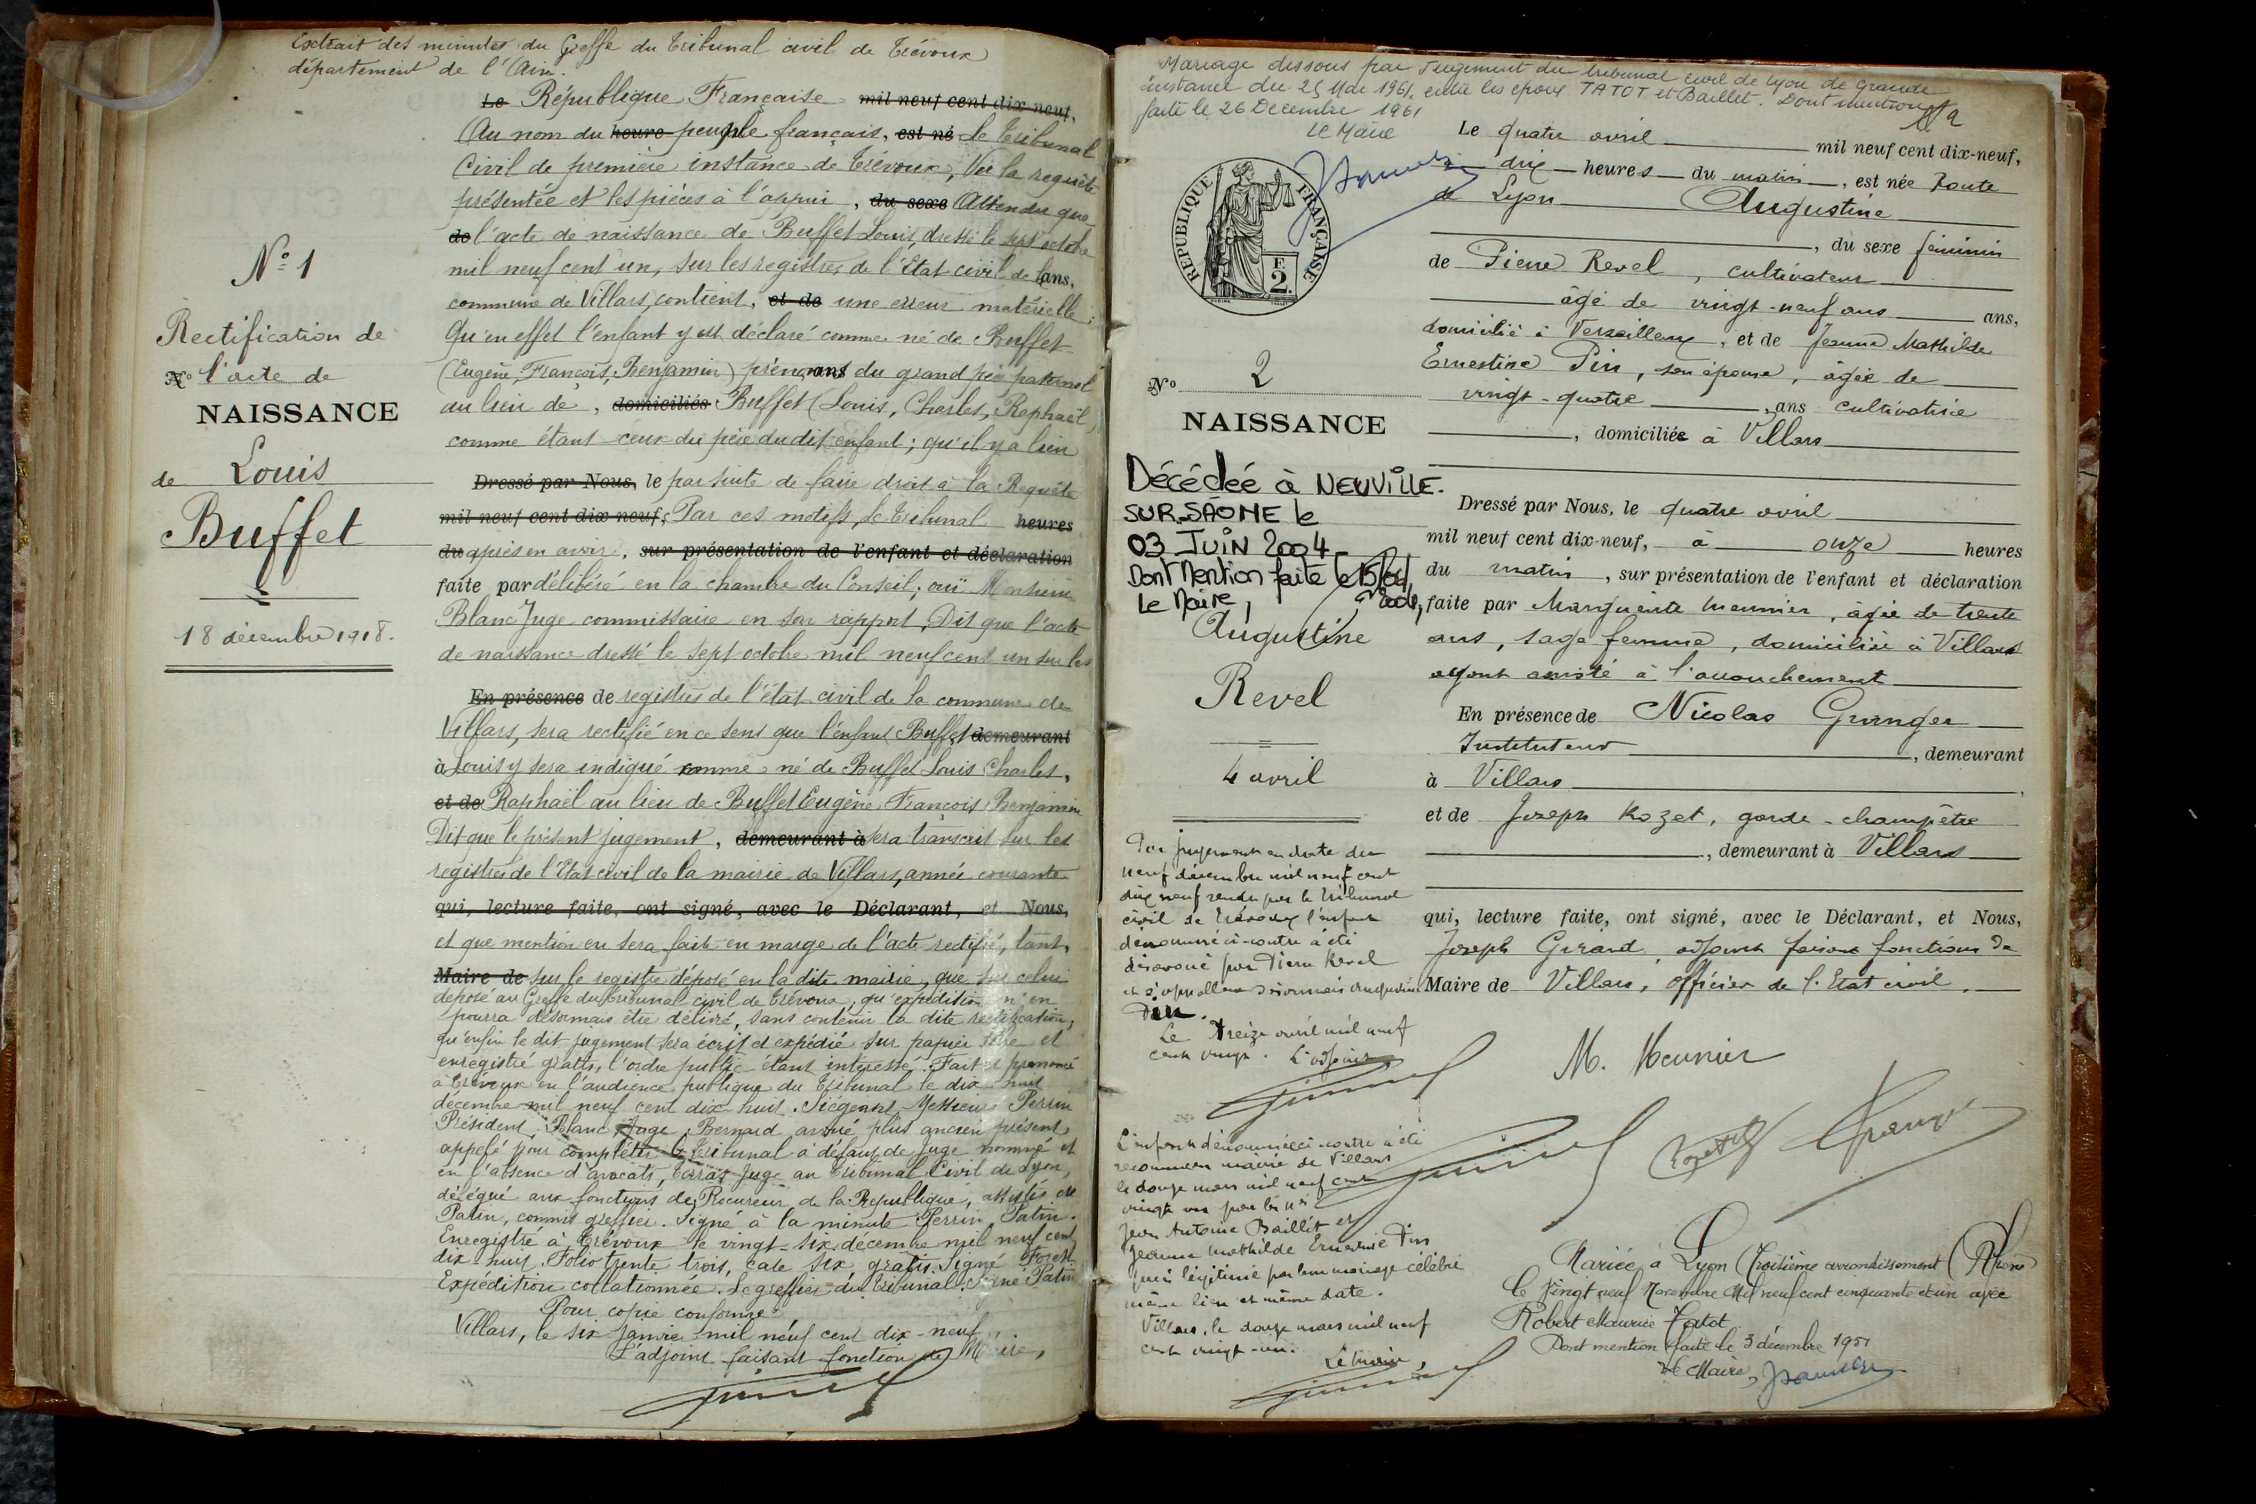 Extrait des minutes du Greffe du Tribunal civil de Trévoux
département de l'Ain.
Le République Française mil neuf cent dix-neuf,
Au nom du heure peuple français, est né le Tribunal
Civil de première instance de Trévoux, Vu la requête
présentée et les pièces à l'appui, du sexe Attendu que
de l'acte de naissance de Buffet Louis, dressé le sept octobre
mil neuf cent un, sur les registres de l'Etat civil de la ans,
commune de Villars, contient, et de une erreur matérielle;
Qu'en effet l'enfant y est déclaré comme né de Buffet
(Eugène, François, Benjamin) prénoms du grand père paternel
au lieu de, domiciliés Buffet (Louis, Charles, Raphaël)
comme étant ceux du père dudit enfant; qu'il y a lieu
Dressé par Nous, le par suite de faire droit à la Requête
mil neuf cent dix-neuf; Par ces motifs, le Tribunal heures
du après en avoir, sur présentation de l'enfant et déclaration
faite par délibéré en la chambre du Conseil; ouï Monsieur
Blanc Juge commissaire en son rapport, Dit que l'acte
de naissance dressé le sept octobre mil neuf cent un sur les
En présence de registres de l'état civil de la commune de
Villars, sera rectifié en ce sens que l'enfant Buffet demeurant
à Louis y sera indiqué comme né de Buffet Louis Charles,
et de Raphaël au lieu de Buffet Eugène François Benjamin
Dit que le présent jugement, demeurant à sera transcrit sur les
registres de l'Etat civil de la mairie de Villars, année courante
qui, lecture faite, ont signé, avec le Déclarant, et Nous,
et que mention en sera faite en marge de l'acte rectifié, tant,
Maire de sur le registre déposé en la dite mairie, que sur celui
déposé au Greffe du Tribunal civil de Trévoux, qu'expédition n'en
pourra désormais être délivré, sans contenir la dite rectification,
qu'enfin le dit jugement sera écrit et expédié sur papier libre et
enregistré gratis, l'ordre public étant intéressé. Fait et prononcé
à Trévoux en l'audience publique du Tribunal le dix huit
décembre mil neuf cent dix huit. Siégeant Messieurs Perrin
Président, Blanc Juge, Bernard avoué plus ancien présent
appelé pour compléter le Tribunal à défaut de Juge nommé et
en l'absence d'avocats, Terras Juge au Tribunal Civil de Lyon,
délégué aux fonctions de Procureur de la République, assistés de
Patin, commis greffier. Signé à la minute Perrin Patin.
Enregistré à Trévoux le vingt-six décembre mil neuf cent
dix huit. Folio trente trois, case six, gratis. Signé Forest.
Expédition collationnée. Le greffier du Tribunal. Signé Patin
Pour copie conforme
Villars, le six janvier mil neuf cent dix-neuf.
L'adjoint faisant fonction de Maire,
N° 1
Rectification de
N° l'acte de
NAISSANCE
de Louis
Buffet
18 décembre 1918.
Mariage dissous par Jugement du tribunal civil de Lyon de Grande
instance du 25 Mai 1961, entre les époux TATOT et Baillet. Dont mention
faite le 26 Decembre 1961
Le Maire
REPUBLIQUE FRANÇAISE
F.
2.
N° 2
NAISSANCE
Décédée à NEUVILLE.
SUR SAÔNE le
03 JUIN 2004
Dont Mention faite le
Le Maire,
Augustine
Revel
4 avril
Par jugement en date du
neuf décembre mil neuf cent
dix neuf rendu par le tribunal
civil de Trévoux l'enfant
dénommé ci-contre a été
désavoué par Pierre Revel
et s'appellera désormais Augustine
Pin.
Le treize avril mil neuf
cent vingt. L'adjoint
L'enfant dénommée ci-contre a été
reconnue en mairie de Villars
le douze mars mil neuf cent
vingt un par les
Jean Antoine Baillet et
Jeanne Mathilde Ernestine Pin
puis légitimé par leur mariage célébré
même lieu et même date.
Villars, le douze mars mil neuf
cent vingt-un.
Le Maire,
Le quatre avril mil neuf cent dix-neuf,
à dix heures du matin, est née Route
de Lyon Augustine
, du sexe féminin
de Pierre Revel, cultivateur
âgé de vingt-neuf ans ans,
domicilié à Versailleux, et de Jeanne Mathilde
Ernestine Pin, son épouse, âgée de
vingt-quatre, ans cultivatrice
, domiciliée à Villars
Dressé par Nous, le quatre avril
mil neuf cent dix-neuf, à onze heures
du matin, sur présentation de l'enfant et déclaration
faite par Marguerite Meunier, âgée de trente
ans, sage femme, domiciliée à Villars
ayant assisté à l'accouchement
En présence de Nicolas Granger
Instituteur, demeurant
à Villars
et de Joseph Rozet, garde-champêtre
, demeurant à Villars
qui, lecture faite, ont signé, avec le Déclarant, et Nous,
Joseph Girard, adjoint faisant fonctions de
Maire de Villars, officier de l'Etat civil.
M. Meunier
Mariée à Lyon (Troisième arrondissement) (Rhône)
le Vingt neuf Novembre Mil neuf cent cinquante et un avec
Robert Maurice Tatot
Dont mention faite le 3 décembre 1951
Le Maire,